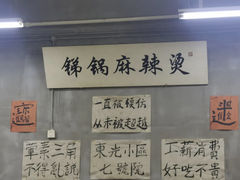 锑锅麻辣烫
一直被模仿
从未被超越
荤素三角
不得乱说
東光小區
七號院
工薪消費
好吃不貴